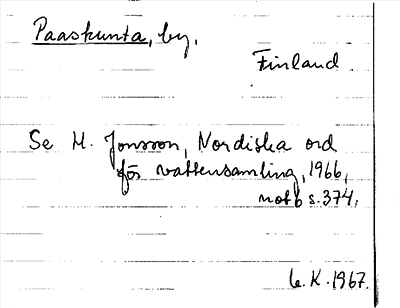 Paaskunta, by,
Finland
Se H. Jonsson, Nordiska ord
för vattensamling, 1966,
not 6 s. 374,
L. K. 1967.